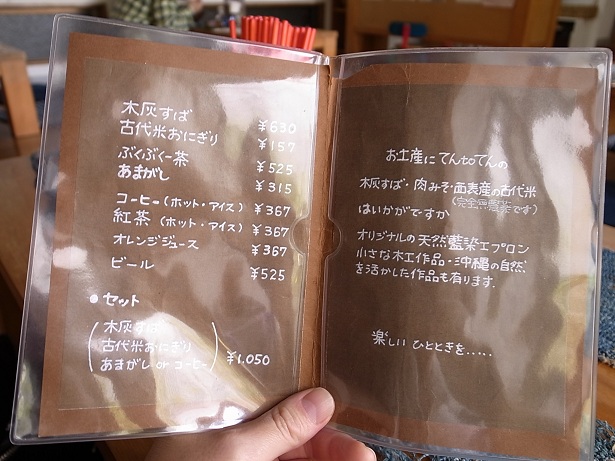 木灰すば ¥630
古代米おにぎり ¥157
ぶくぶくー茶 ¥525
あまがし ¥315
コーヒー(ホット・アイス) ¥367
紅茶(ホット・アイス) ¥367
オレンジジュース ¥367
ビール ¥525
●セット
木灰すば
古代米おにぎり
あまがし or コーヒー
¥1,050
お土産にてんtoてんの
木灰すば・肉みそ・西表産の古代米
(完全無農薬です)
はいかがですか
オリジナルの天然藍染エプロン
小さな木工作品・沖縄の自然
を活かした作品も有ります.
楽しい ひとときを.....